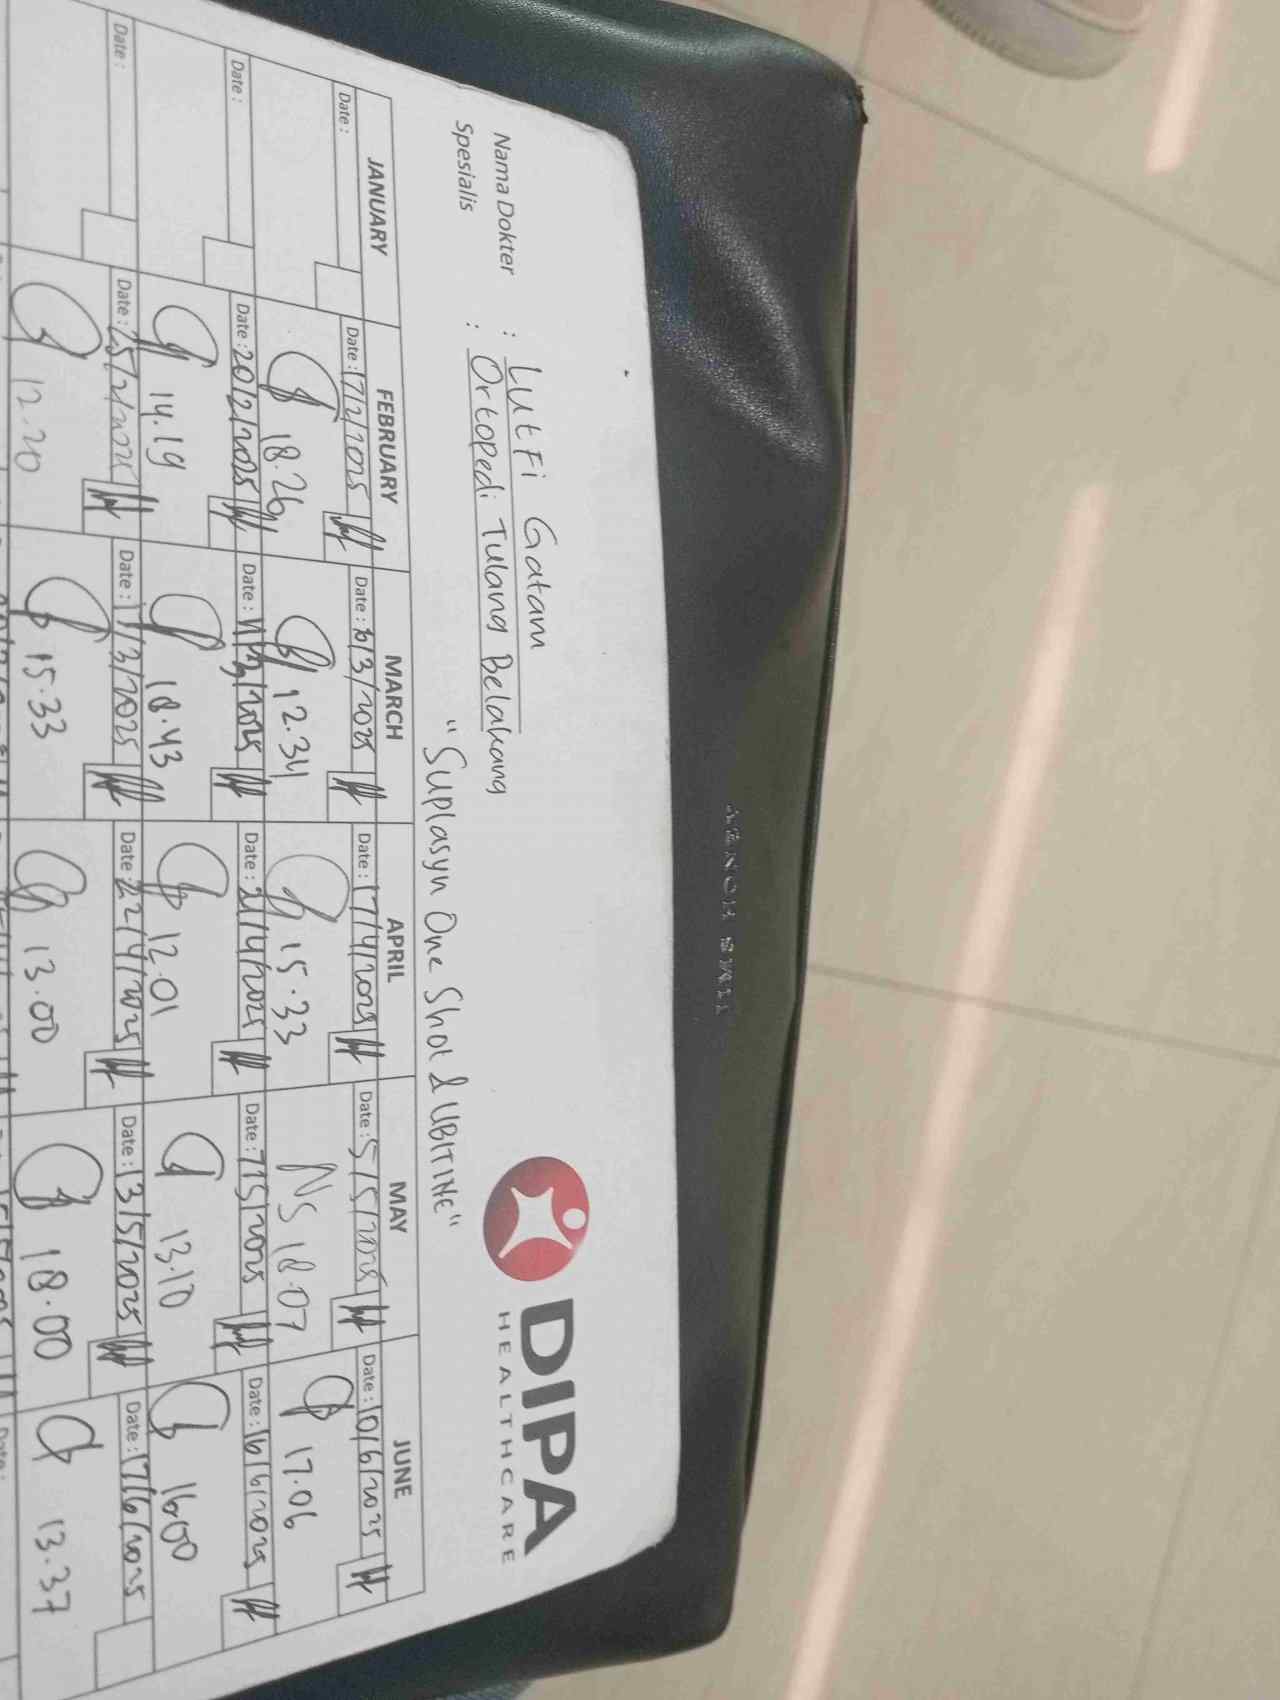 DIPA
HEALTHCARE
Nama Dokter : Lutfi Gatam
Spesialis : Ortopedi Tulang Belakang
"Suplasyn One Shot & UBITINE"
JANUARY FEBRUARY MARCH APRIL MAY JUNE
Date: Date: 17/2/2025 Date: 10/3/2025 Date: 17/4/2025 Date: 5/5/2025 Date: 10/6/2025
18.26 12.34 15.33 NS 18.07 17.06
Date: Date: 20/2/2025 Date: 11/3/2025 Date: 21/4/2025 Date: 7/5/2025 Date: 16/6/2025
14.19 18.43 12.01 13.10 16.00
Date: Date: 25/2/2025 Date: 17/3/2025 Date: 22/4/2025 Date: 13/5/2025 Date: 17/6/2025
12.20 15.33 13.00 18.00 13.37
Date: